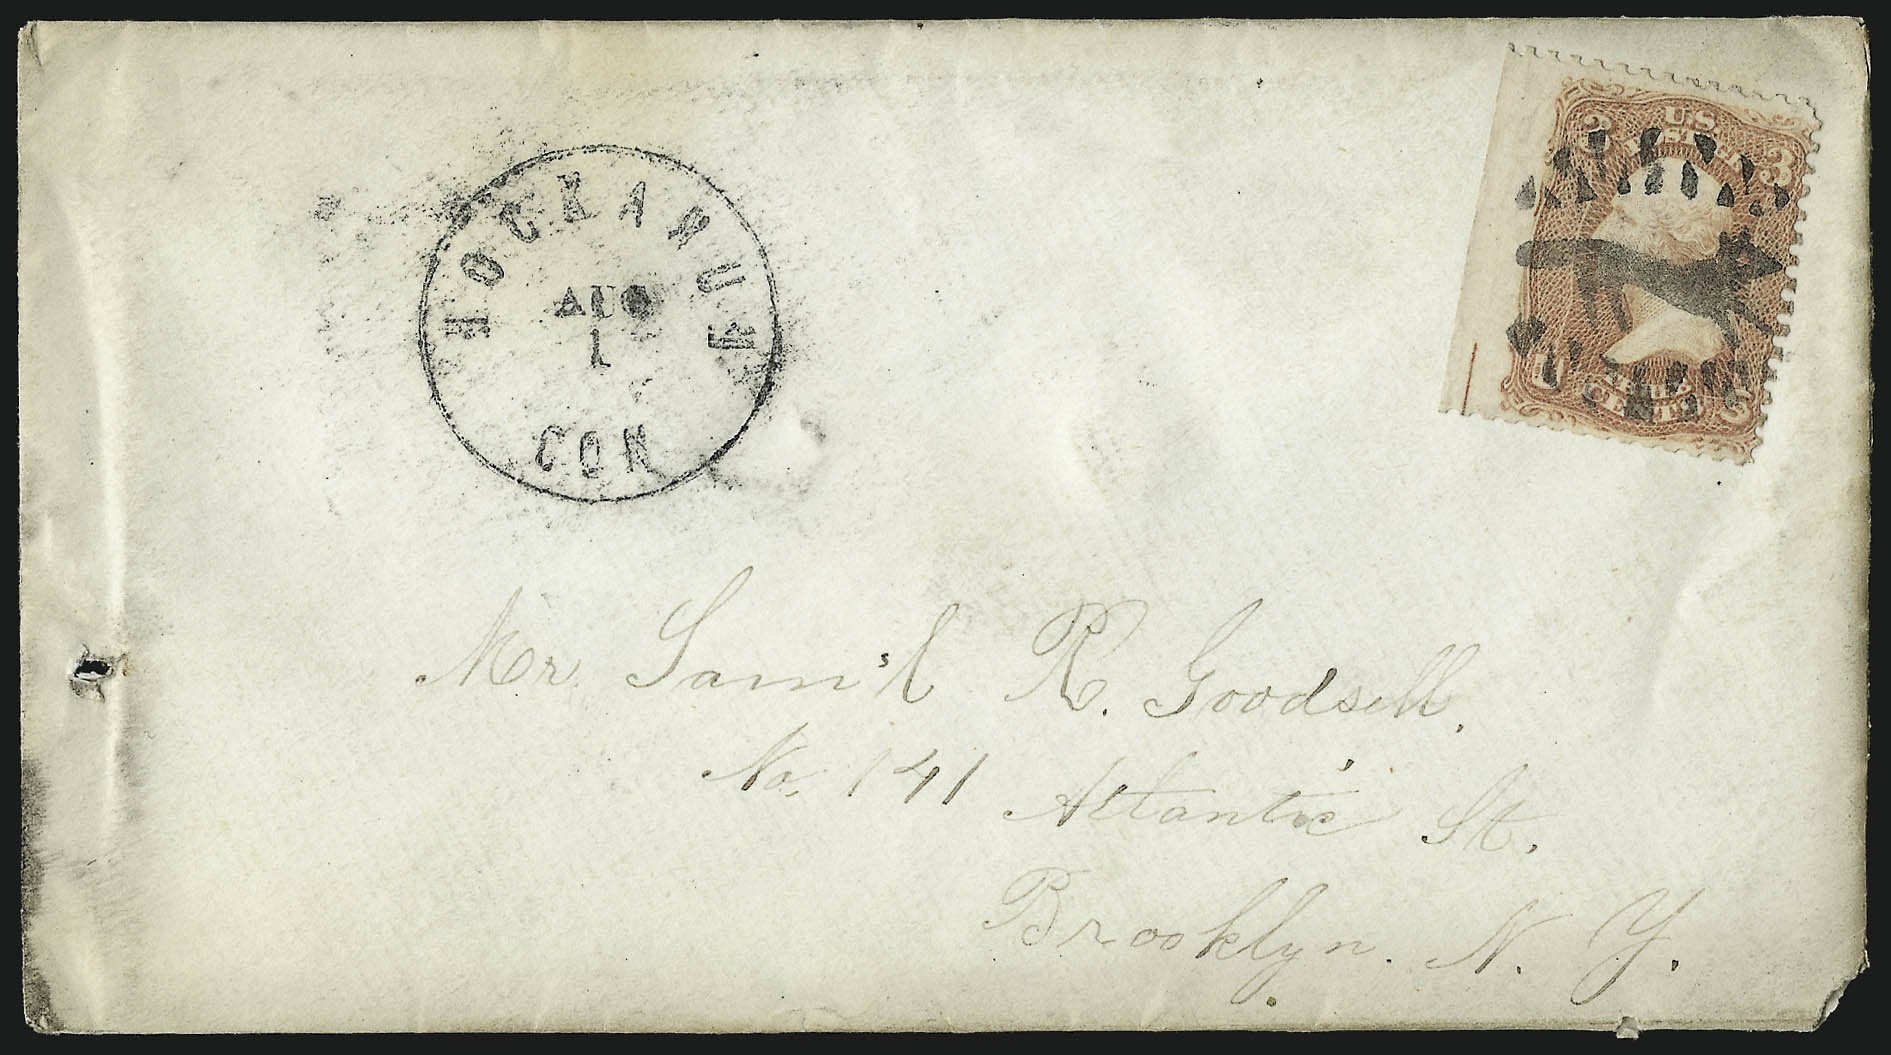 HOCKANUM
AUG
1
CON
U.S.
3 3
THREE
CENTS
Mr Sam'l R. Goodsell.
No. 141 Atlantic St.
Brooklyn. N. Y.